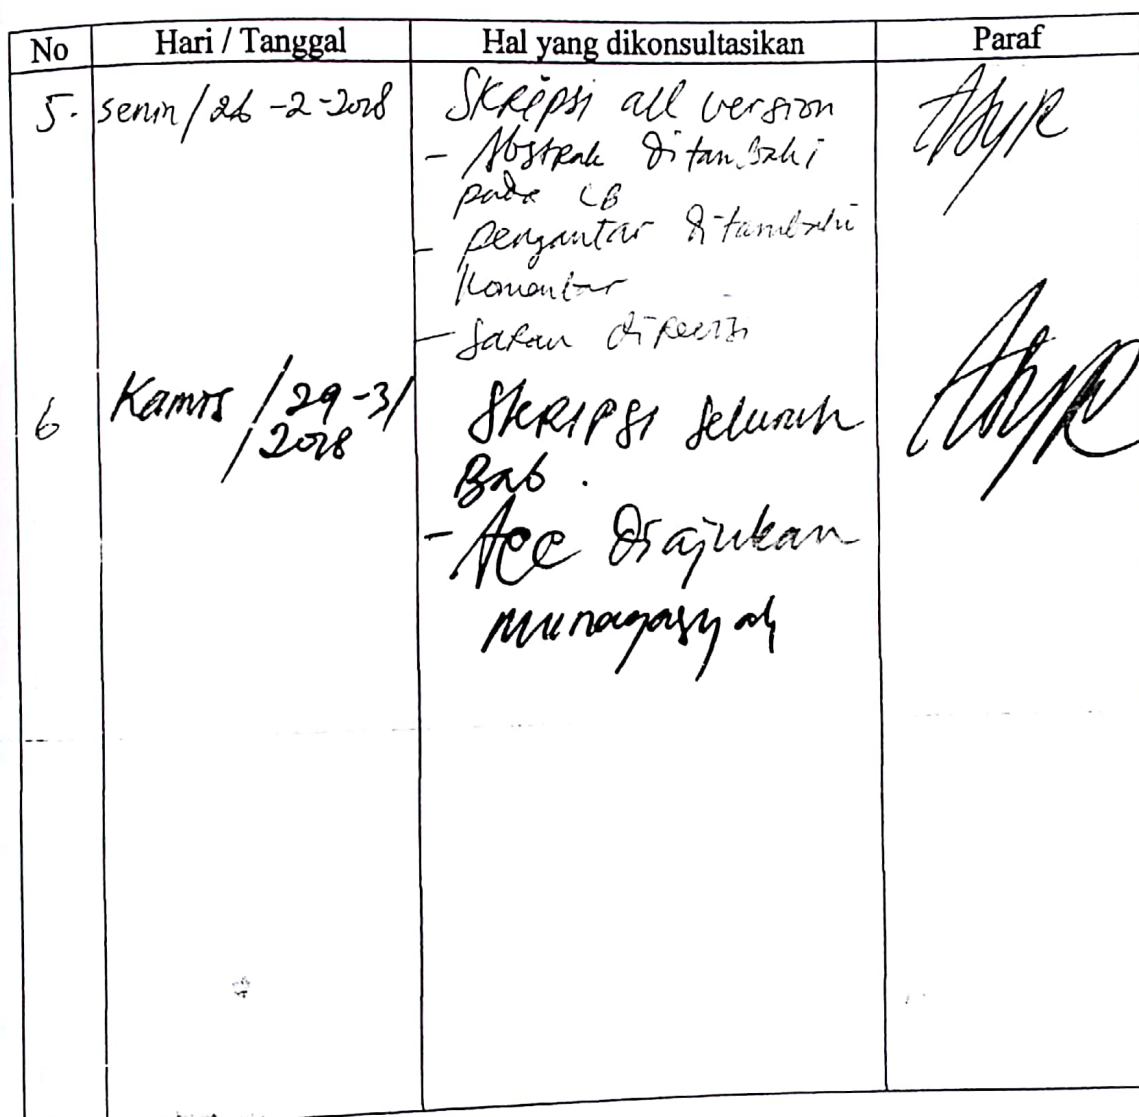 No Hari / Tanggal Hal yang dikonsultasikan Paraf
5. senin / 26 -2 -2018 Skripsi all version
- Abstrak ditambahi
pada LB
- pengantar ditambahi
Komentar
- Saran direvisi
6 Kamis / 29 -3 / Skripsi seluruh
/ 2018 Bab.
- Acc diajukan
munaqasyah